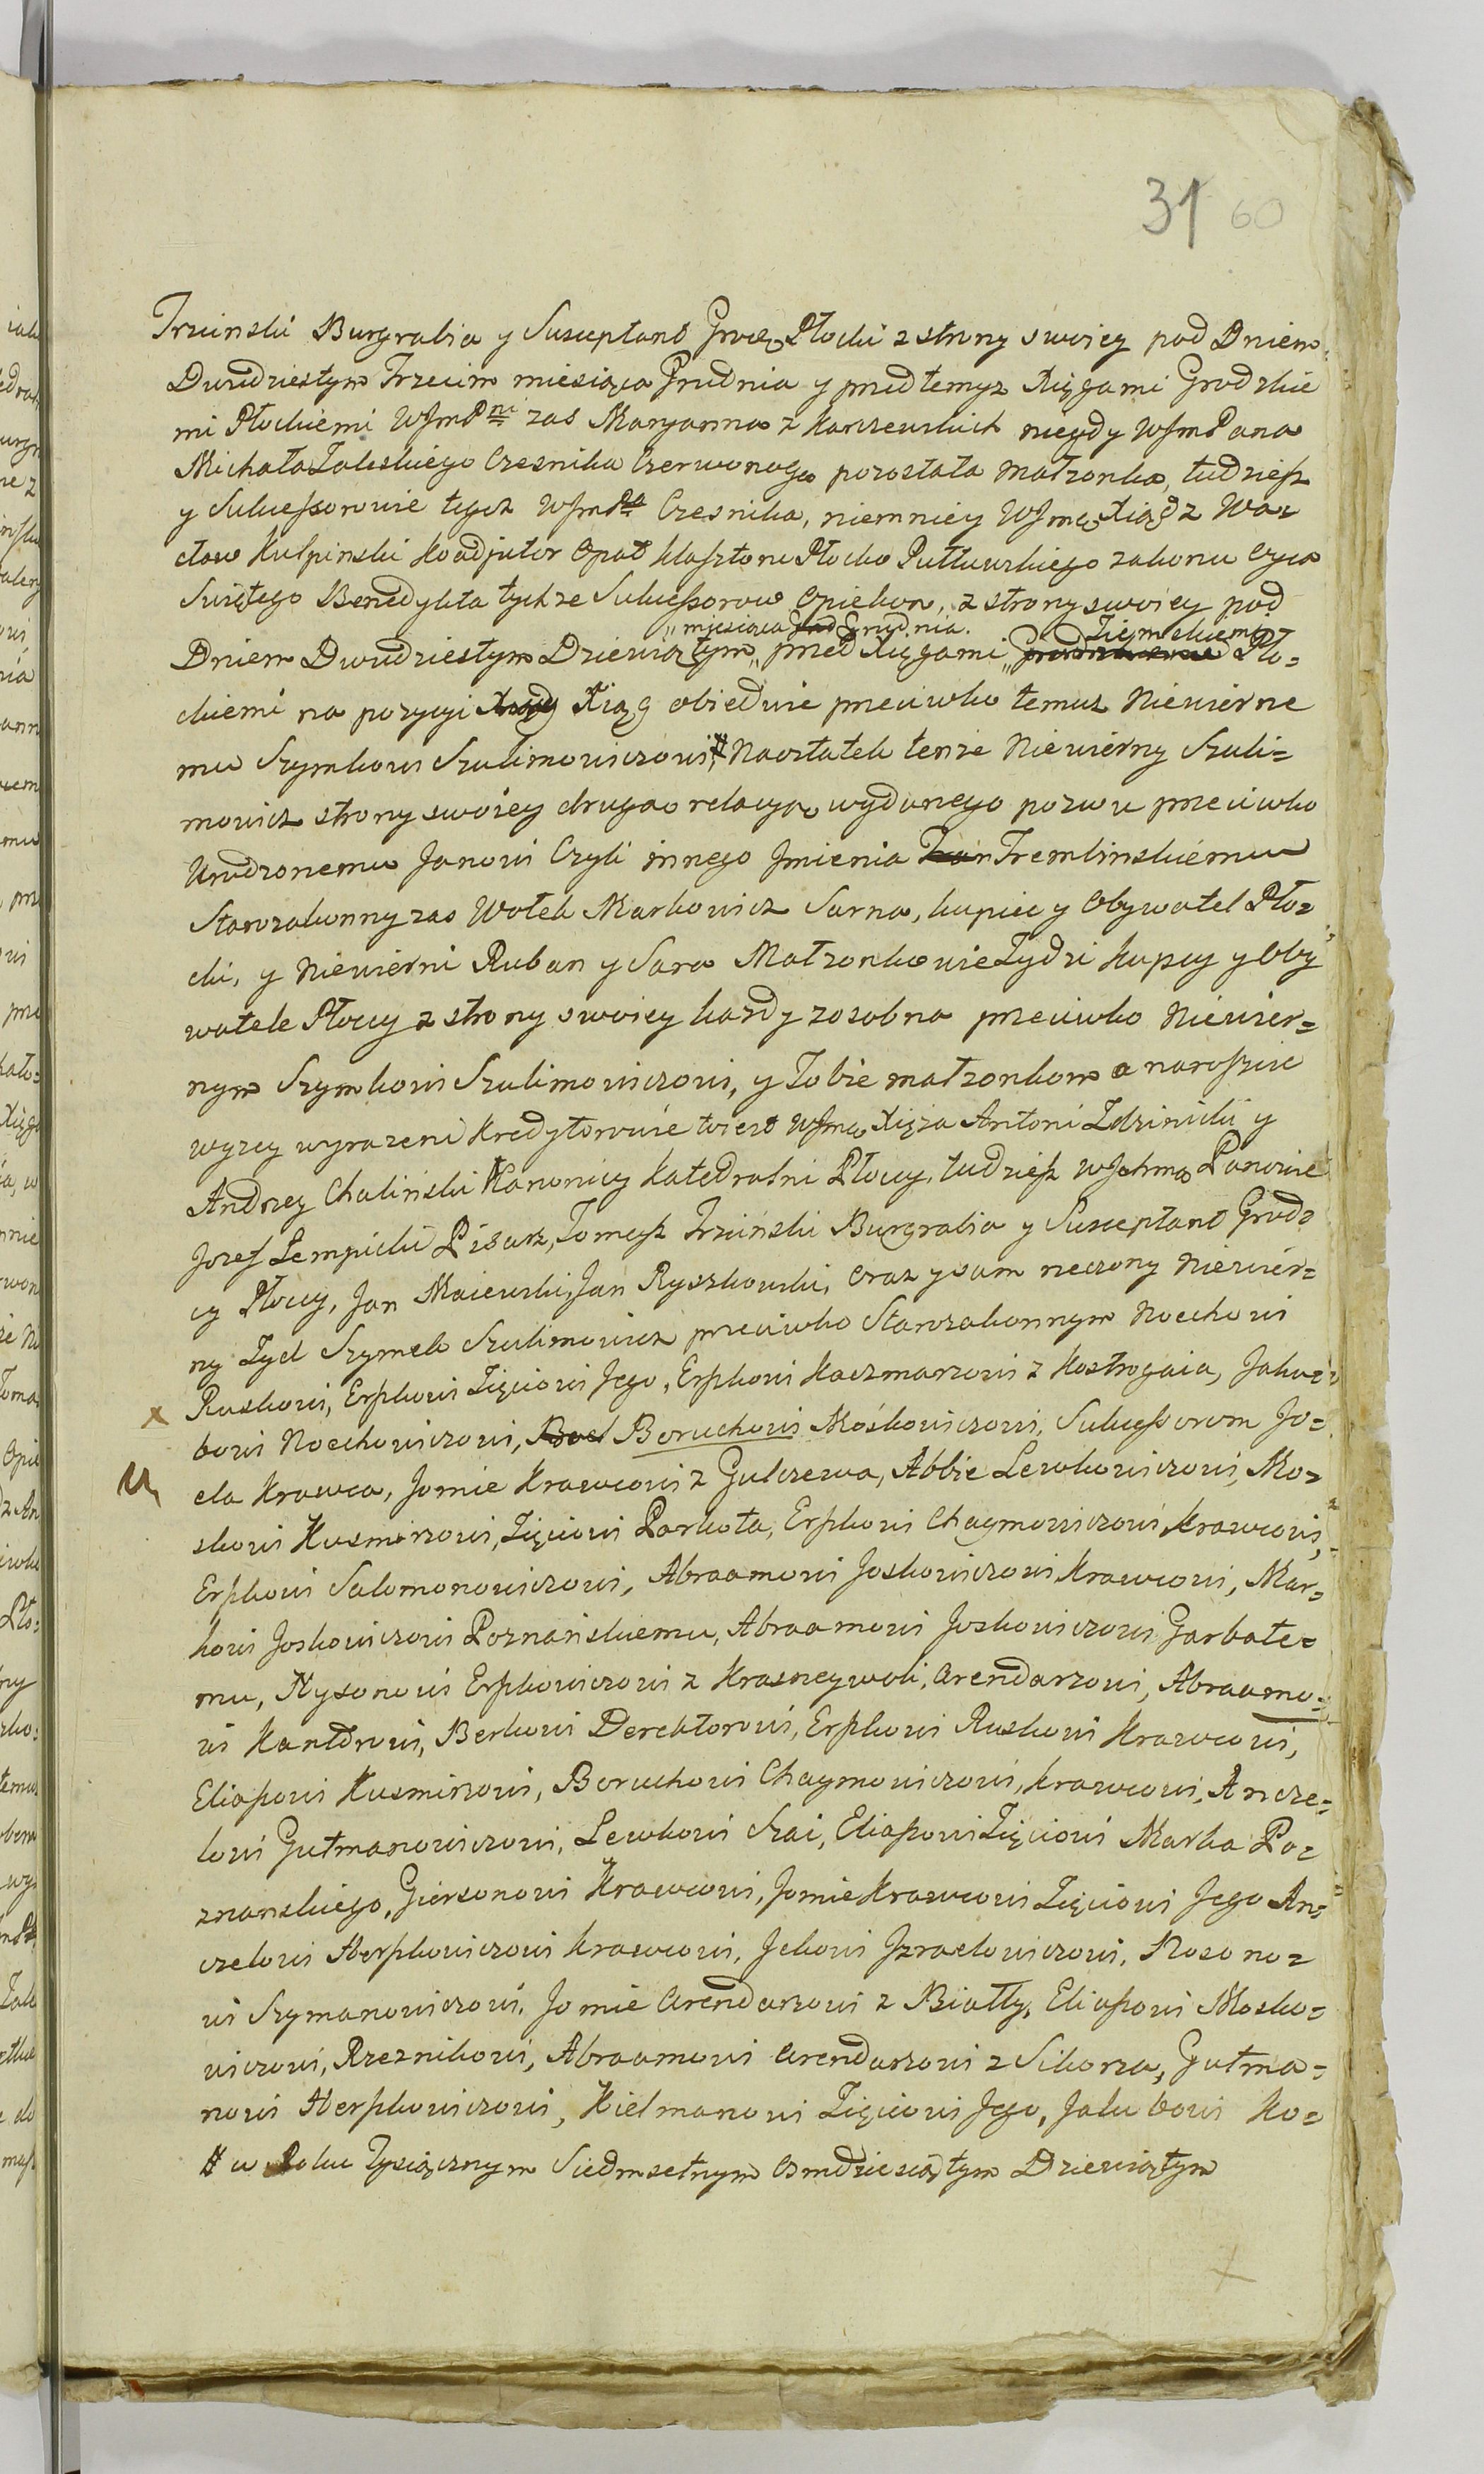 31 60
Trzinski Burgrabia y Susceptant Grodz. Płocki z strony swoiey pod Dniem
Dwudziestym Trzecim miesiąca Grudnia y przed temyz Xięgami Grodzkie
mi Płockiemi WJmPni zas Maryanna z Karczewskich niegdy WJmPana
Michała Zaleskiego Czesnika Czerwonogo pozostała Małzonka, tudziesz
y Sukcessorowie tegoz WJmPa Czesnika, niemniey WJmc Xiądz Wa=
cław Kulpinski Koadjutor Opat Klasztoru Płocko Pułtuskiego zakonu Oyca
Swiętego Benedykta tychze Sukcessorow Opiekon, z strony swoiey pod
„miesiąca Grudnia. Ziemskiemi
Dniem Dwudziestym Dziewiątym„ przed Xięgami „ Pło=
ckiemi na pozycyi Xiąg obiedwie przeciwko temuz Niewierne
mu Szymkowi Szulimowiczowi, # Naostatek tenze Niewierny Szuli=
mowicz strony swoiey drugą relacyą wydanego pozwu przeciwko
Urodzonemu Janowi Czyli innego Jmienia Tremblinskiemu
Starozakonny zas Wołek Markowicz Sarna, kupiec y Obywatel Pło=
cki, y Niewierni Ruban y Sara Małzonkowie Zydzi Kupcy y Oby
watele Płoccy z strony swoiey kazdy zosobna przeciwko Niewier=
nym Szymkowi Szulimowiczowi, y Tobie małzonkom a naroszcie
wyzey wyrazeni Kredytorowie toiest WJmc Xięza Antoni Zdzinicki y
Andrzey Chalinski Kanonicy Katedralni Płoccy, tudziesz WJchmc Panowie
Jozef Lempicki Pisarz, Tomasz Trzinski Burgrabia y Susceptant Grodz
cy Płoccy, Jan Maiewski, Jan Ryszkowski, Oraz y sam rzeczony Niewier=
ny Zyd Szymek Szulimowicz przeciwko Starozakonnym Noechowi
Ruskowi, Erszkowi Zięciowi Jego, Erszkowi Kaczmarzowi z Kostrogaia, Jaku=
x bowi Noechowiczowi, Boruchowi Moskowiczowi, Sukcessorom Jo=
ela Krawca, Jomie Krawcowi z Gulczewa, Abbie Lewkowiczowi, Mo=
skowi Kusmirzowi, Zięciowi Parkota, Erszkowi Chaymowiczowi Krawcowi,
Erszkowi Salomonowiczowi, Abraamowi Joskowiczowi Krawcowi, Mar=
kowi Joskowiczowi Poznańskiemu, Abraamowi Joskowiczowi Garbate=
mu, Nysonowi Erszkowiczowi z Krasneywoli, Arendarzowi, Abraamo=
wi Kantorowi, Berkowi Derektorowi, Erszkowi Ruskowi Krawcowi,
Eliaszowi Kusmirzowi, Boruchowi Chaymowiczowi, krawcowi, Ancze=
lowi Gutmanowiczowi, Lewkowi Szai, Eliaszowi Zięciowi Marka Po=
znanskiego, Giersonowi Krawcowi, Jomie Krawcowi Zięciowi Jego An=
czelowi Herszkowiczowi krawcowi, Jckowi Jzraelowiczowi, Nosono=
wi Szymanowiczowi, Jomie Arendarzowi z Białły, Eliaszowi Mosko=
wiczowi, Rzeznikowi, Abraamowi Arendarzowi z Sikorza, Gutma=
nowi Herszkowiczowi, Kielmanowi Zięciowi Jego, Jakubowi Ko=
# w Roku Tysiącznym Siedmsetnym Osmdziesiątym Dziewiątym